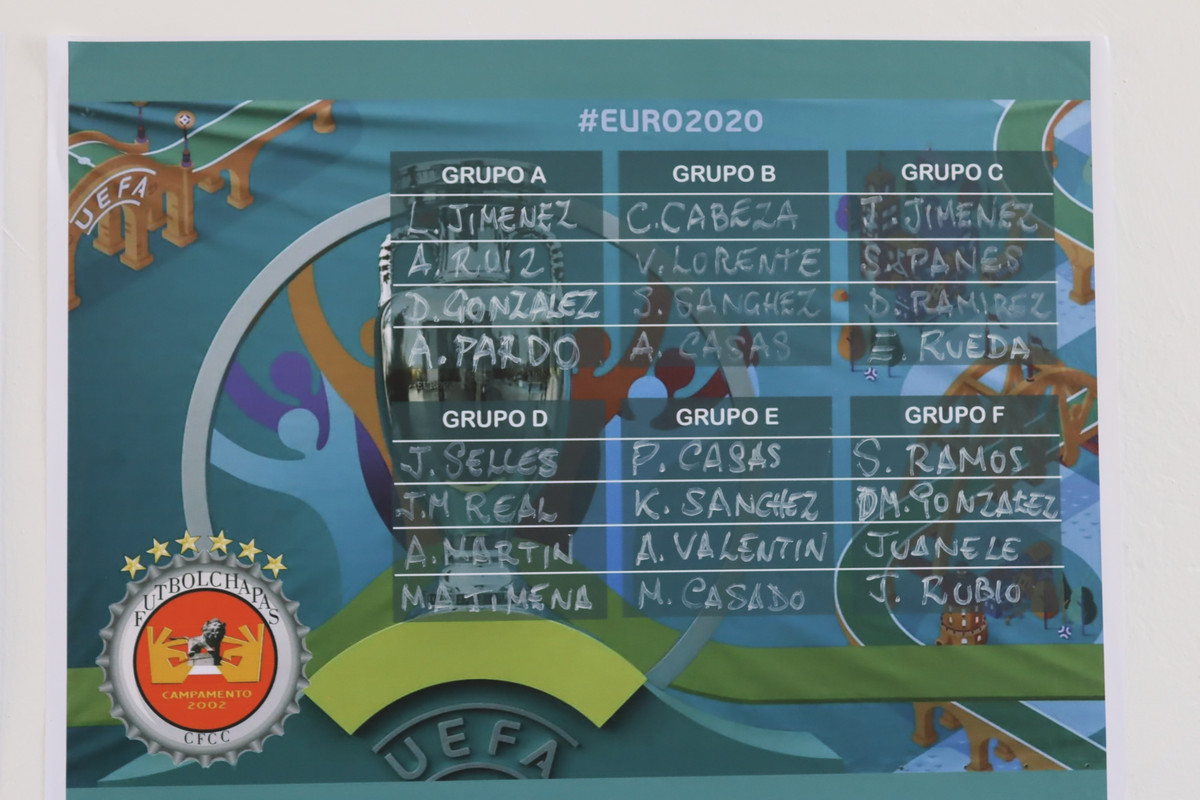 #EURO2020
UEFA
GRUPO A
L. JIMENEZ
A. RUIZ
D. GONZALEZ
A. PARDO
GRUPO B
C. CABEZA
V. LORENTE
S. SANCHEZ
A. CASAS
GRUPO C
JIMENEZ
PANES
D. RAMIREZ
E. RUEDA
GRUPO D
J. SELLES
J.M REAL
A. MARTIN
M.A JIMENA
GRUPO E
P. CASAS
K. SANCHEZ
A. VALENTIN
M. CASADO
GRUPO F
S. RAMOS
DM. GONZALEZ
JUANELE
J. RUBIO
FUTBOLCHAPAS
CAMPAMENTO
2002
CFCC
UEFA